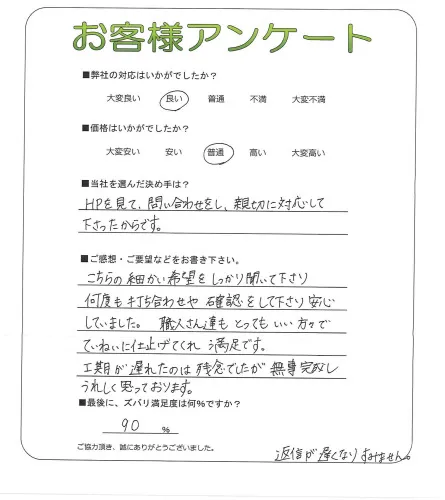 お客様アンケート
■弊社の対応はいかがでしたか?
大変良い 良い 普通 不満 大変不満
■価格はいかがでしたか?
大変安い 安い 普通 高い 大変高い
■当社を選んだ決め手は?
HPを見て、問い合わせをし、親切に対応して
下さったからです。
■ご感想・ご要望などをお書き下さい。
こちらの細かい希望をしっかり聞いて下さり
何度も打ち合わせや確認をして下さり安心
していました。職人さん達もとってもいい方々で
ていねいに仕上げてくれ満足です。
工期が遅れたのは残念でしたが無事完成し
うれしく思っております。
■最後に、ズバリ満足度は何%ですか?
90 %
ご協力頂き、誠にありがとうございました。
返信が遅くなりすみません。